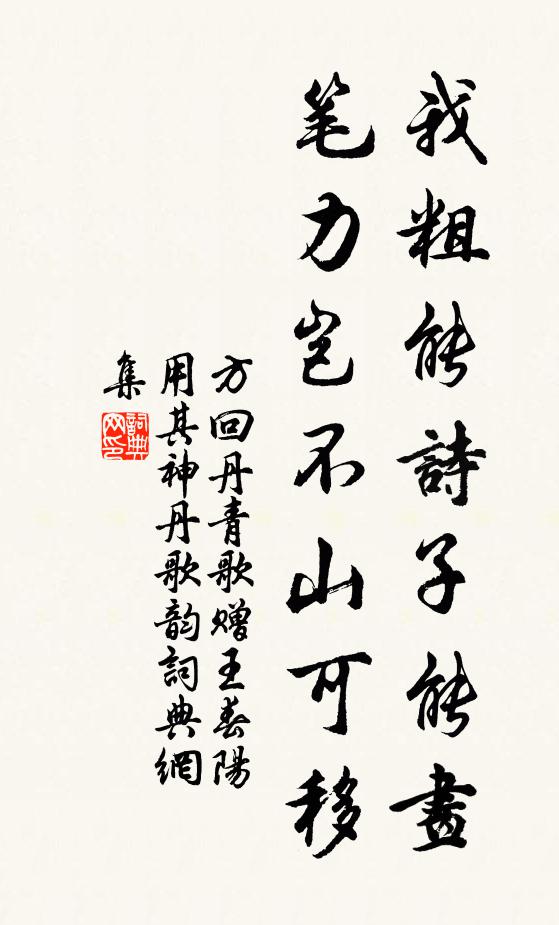 我粗能詩子能畫
笔力岂不山可移
方回丹青歌赠王春陽
用其神丹歌韵詞典網
集
詞典
网印